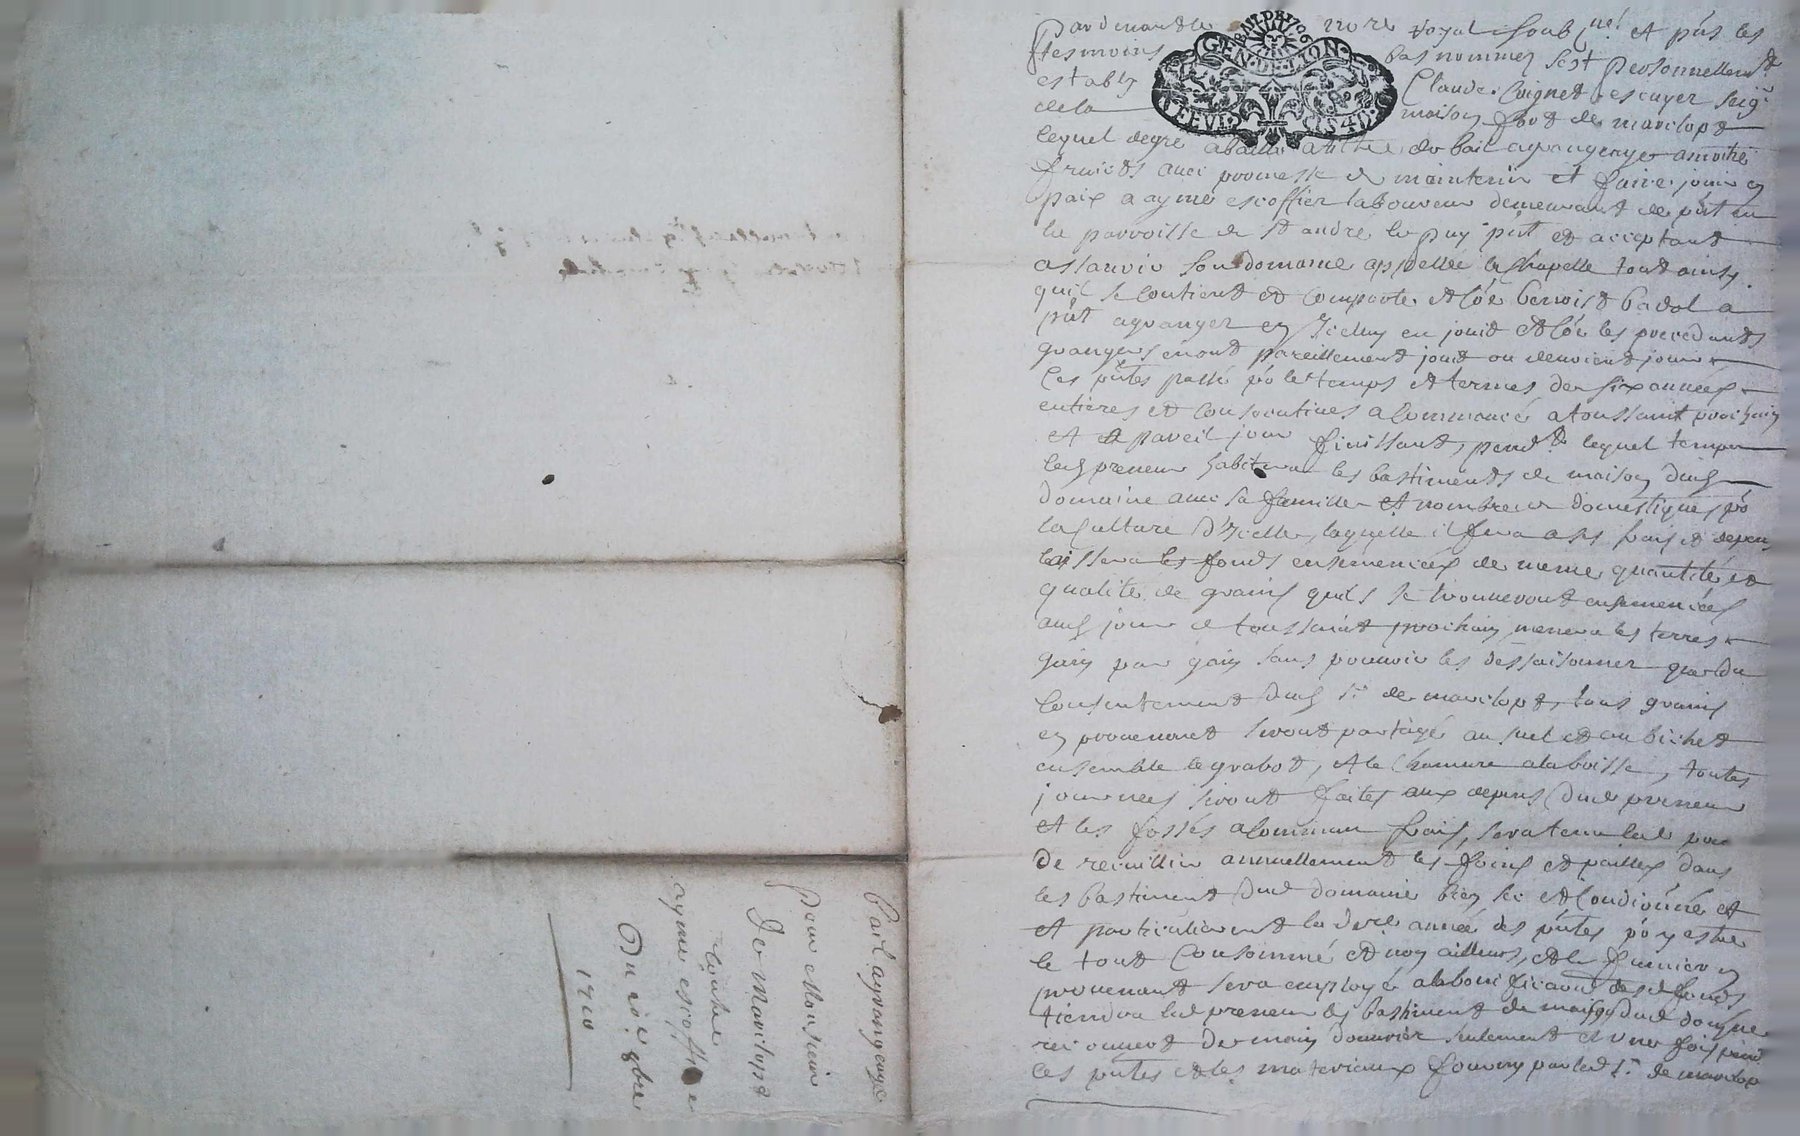 Pardevant le nore royal soubsné et pnt les
tesmoins bas nommez s'est personnellemt
estably Claude Coignet escuyer seigr
de la maison fort de marclopt
lequel de gré a baillé a tiltre de bail a grangeage a moitié
fruicts avec promesse de maintenir et faire jouir en
paix a aymé escoffier laboureur demeurant de pnt en
la parroisse de st andré le puy pnt et acceptant
assavoir son domaine appellée la Chapelle tout ainsy
qu'il se contient et comporte et côe benoist badol a
pnt a granger en Icelluy en jouit et côe les precedants
grangers en ont pareillement jouit ou deuvient jouir
Ces pntes passé po le temps et termes de six années
entieres et consecutives a commancé a toussaint prochain
et a pareil jour finissant, pendt lequel temps
led preneur habitera les bastiments de maison dud
domaine avec sa famille et nombre de domestiques po
la Culture d'Icelle, laquelle il fera a ses frais et depens
laissera les fonds ensemencés de meme quantité et
qualité de grains quils se trouveront ensemencés
aud jour de toussaint prochain menera les terres
gain par gain sans pouvoir les dessaisonner que du
Consentement dud sr de marclopt, tous grains
en provenant seront partagé au suel et au bichet
ensemble le grabot, et le Chanvre a la boisse, toutes
journées seront faites aux depens dud preneur
et les fossés a commun frais, sera tenu led pr
De recuillir annuellement les foins et pailles dans
les bastiment dud domaine bien sec et Condiôné et
et particulierement la dere année des pntes po y estre
le tout Consommé et non ailleurs, et le fumier en
provenant sera employé a la bonificaôn desd fonds
tiendra led preneur les bastiment de maison dud domaine
recouvert de main d'ouvrier seulement et une fois pend
les pntes et les materiaux fourny par led sr de marclop
GEN. DE LION
Bail a grangeage
pour Monsieur
De Marclopt
Contre
ayme escoffier
Du 20e 9bre
1710